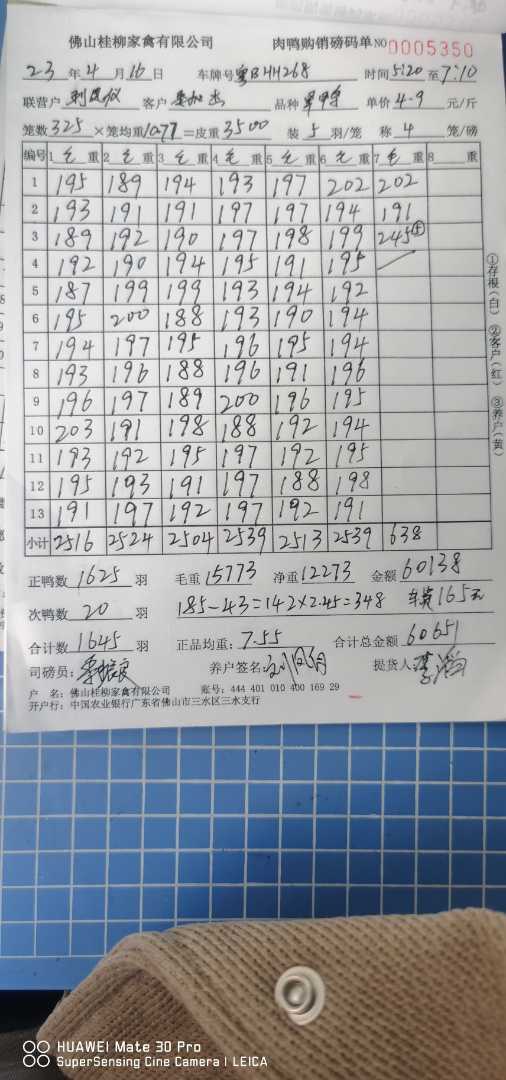 佛山桂柳家禽有限公司 肉鸭购销磅码单 NO 0005350
23 年 4 月 16 日 车牌号 粤BHH268 时间 5:20 至 7:10
联营户 客户 品种 单价 4.9 元/斤
笼数 325 ×笼均重 10.77 =皮重 3500 装 5 羽/笼 称 4 笼/磅
编号 1 毛 重 2 毛 重 3 毛 重 4 毛 重 5 毛 重 6 毛 重 7 毛 重 8 重
1 195 189 194 193 197 202 202
2 193 191 191 197 197 194 191
3 189 192 190 197 198 199 245⑤
4 192 190 194 195 191 195
5 187 199 199 193 194 192
6 195 200 188 193 190 194
7 194 197 195 196 195 194
8 193 196 188 196 191 196
9 196 197 189 200 196 195
10 203 191 198 188 192 194
11 193 192 195 197 192 195
12 195 193 191 197 188 198
13 191 197 192 197 192 191
小计 2516 2524 2504 2539 2513 2539 638
正鸭数 1625 羽 毛重 15773 净重 12273 金额 60138
次鸭数 20 羽 185-43=142×2.45=348 车费165元
合计数 1645 羽 正品均重: 7.55 合计总金额 60651
司磅员: 养户签名: 提货人
户 名: 佛山桂柳家禽有限公司 账号: 444 401 010 400 169 29
开户行: 中国农业银行广东省佛山市三水区三水支行
①存根(白) ②客户(红) ③养户(黄)
HUAWEI Mate 30 Pro
SuperSensing Cine Camera | LEICA